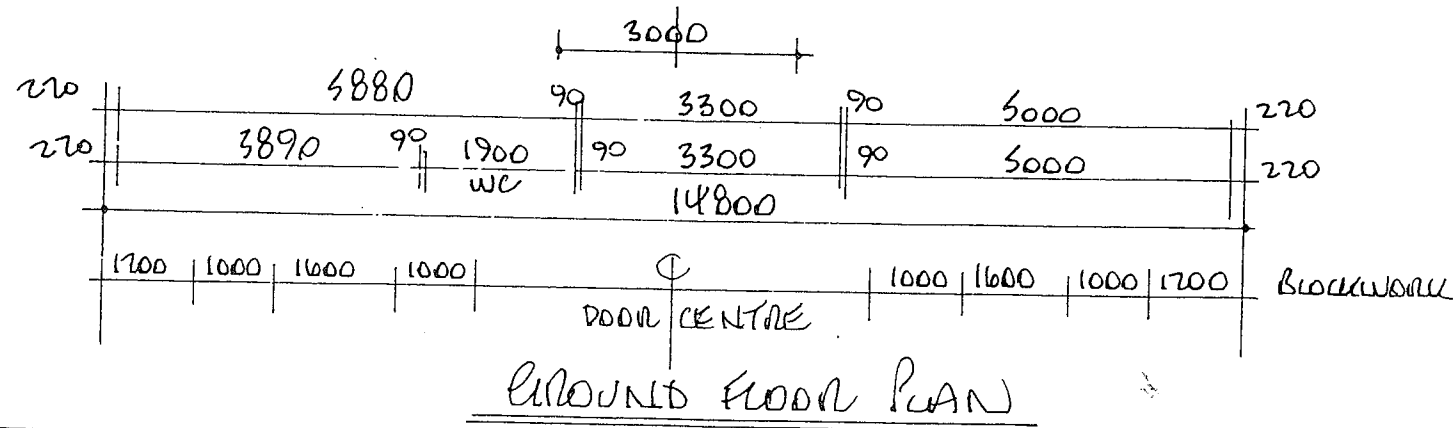 3000
220 5880 90 3300 90 5000 220
220 3890 90 1900 90 3300 90 5000 220
WC
14800
1200 1000 1600 1000 ℄ 1000 1600 1000 1200 BLOCKWORK
DOOR CENTRE
GROUND FLOOR PLAN